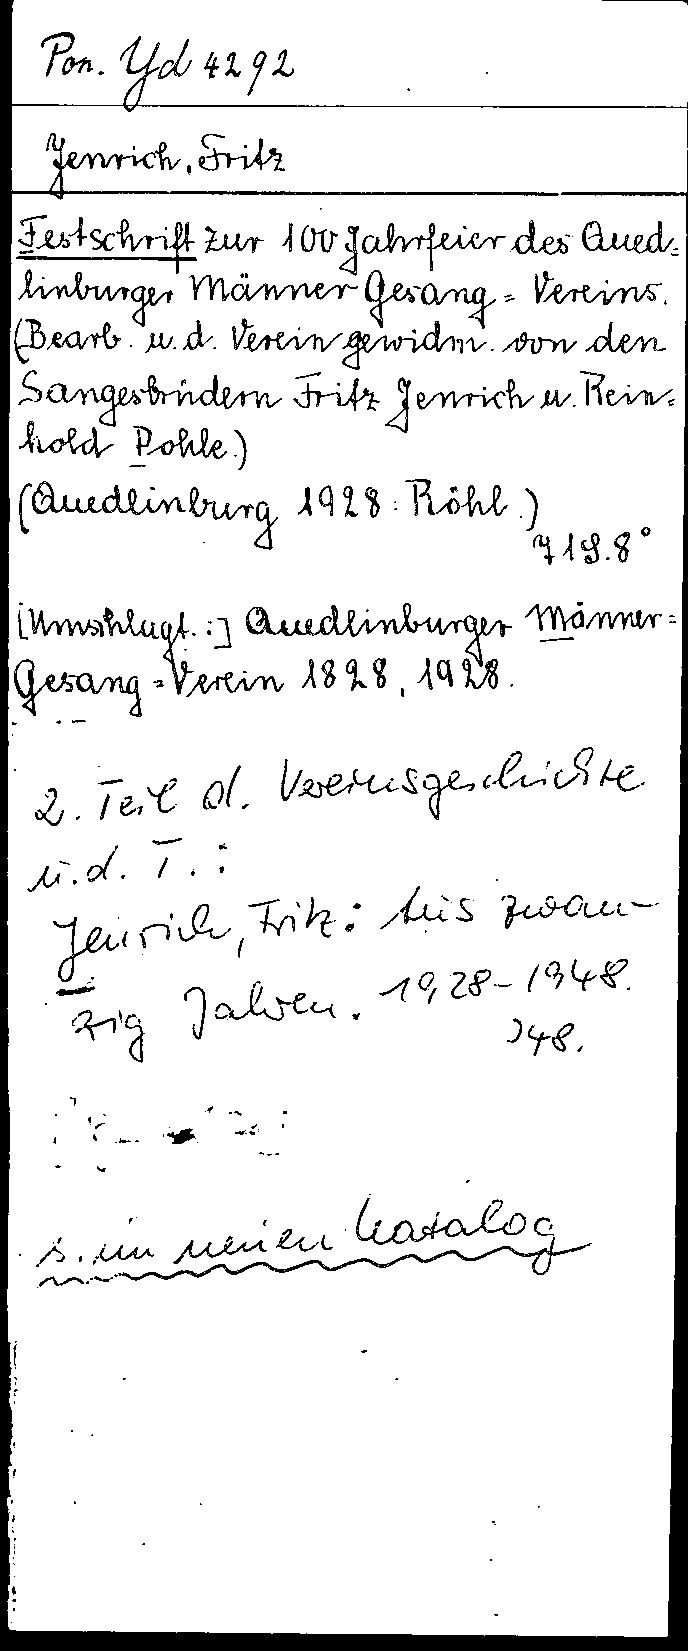 Pon. Yd 4292
Jenrich, Fritz
Festschrift zur 100 Jahrfeier des Qued=
linburger Männer Gesang=Vereins.
(Bearb. u. d. Verein gewidm. von den
Sangesbrüdern Fritz Jenrich u. Rein=
hold Pohle.)
(Quedlinburg 1928: Röhl.)
71 S. 8°
[Umschlagt.:] Quedlinburger Männer=
Gesang=Verein 1828, 1928.
2. Teil d. Vereinsgeschichte
u. d. T.:
Jenrich, Fritz: Aus zwan-
zig Jahren. 1928-1948.
)48.
s. im neuen Katalog